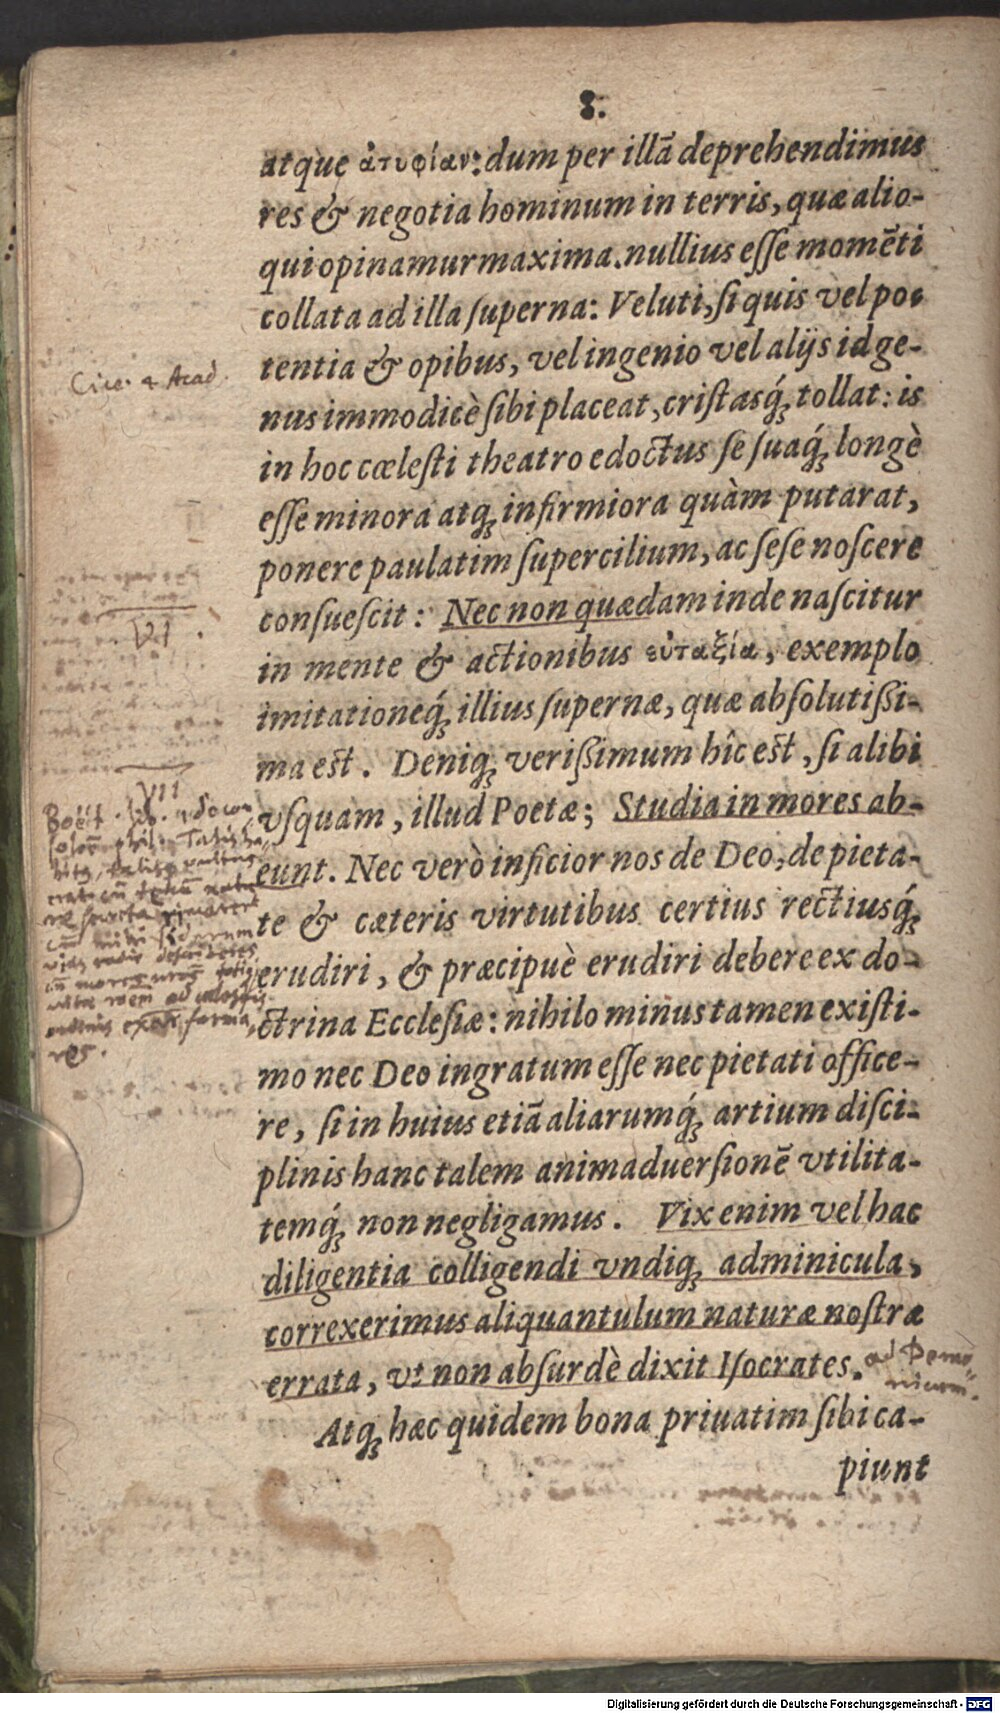 8.
atque ἀτυφίαν: dum per illā deprehendimus
res & negotia hominum in terris, quæ alio-
qui opinamur maxima, nullius eſſe momēti
collata ad illa ſuperna: Veluti, ſi quis vel po-
tentia & opibus, vel ingenio vel alijs id ge-
Cice. 4 Acad.
nus immodicè ſibi placeat, criſtasq́; tollat: is
in hoc cæleſti theatro edoctus ſe ſuaq́; longè
eſſe minora atq; infirmiora quàm putarat,
ponere paulatim ſupercilium, ac ſeſe noſcere
conſueſcit: Nec non quædam inde naſcitur
VI.
in mente & actionibus εὐταξία, exemplo
imitationeq́; illius ſupernæ, quæ abſolutißi-
ma est. Deniq; verißimum hîc est, ſi alibi
VII
vſquam, illud Poetæ; Studia in mores ab-
eunt. Nec verò inficior nos de Deo, de pieta-
te & cæteris virtutibus certius rectiusq́;
erudiri, & præcipuè erudiri debere ex do-
ctrina Eccleſiæ: nihilo minus tamen exiſti-
mo nec Deo ingratum eſſe nec pietati office-
re, ſi in huius etiā aliarumq́; artium diſci-
plinis hanc talem animaduerſionē vtilita-
temq́; non negligamus. Vix enim vel hac
diligentia colligendi vndiq; adminicula,
correxerimus aliquantulum naturæ noſtræ
errata, vt non abſurdè dixit Iſocrates. ad Demo
nicum.
Atq; hæc quidem bona priuatim ſibi ca-
piunt
Digitalisierung gefördert durch die Deutsche Forschungsgemeinschaft - DFG